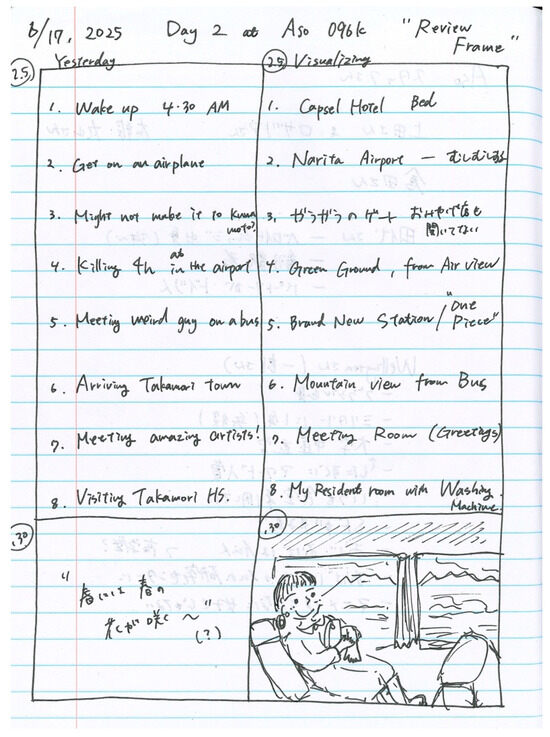 6/17, 2025 Day 2 at Aso 096k "Review Frame"
2.5
Yesterday
1. Wake up 4:30 AM
2. Get on an airplane
3. Might not make it to Kumamoto?
4. Killing 4h at in the airport
5. Meeting weird guy on a bus
6. Arriving Takamori town
7. Meeting amazing artists!
8. Visiting Takamori HS.
2.5
Visualizing
1. Capsel Hotel Bed
2. Narita Airport — むしむしする
3. ガラガラのゲート おみやげ店も
開いてない
4. Green Ground, from Air view
5. Brand New Station / "One
Piece"
6. Mountain view from Bus
7. Meeting Room (Greetings)
8. My Resident room with Washing
Machine.
.30
"春には 春の
花が咲く〜"
(?)
.30